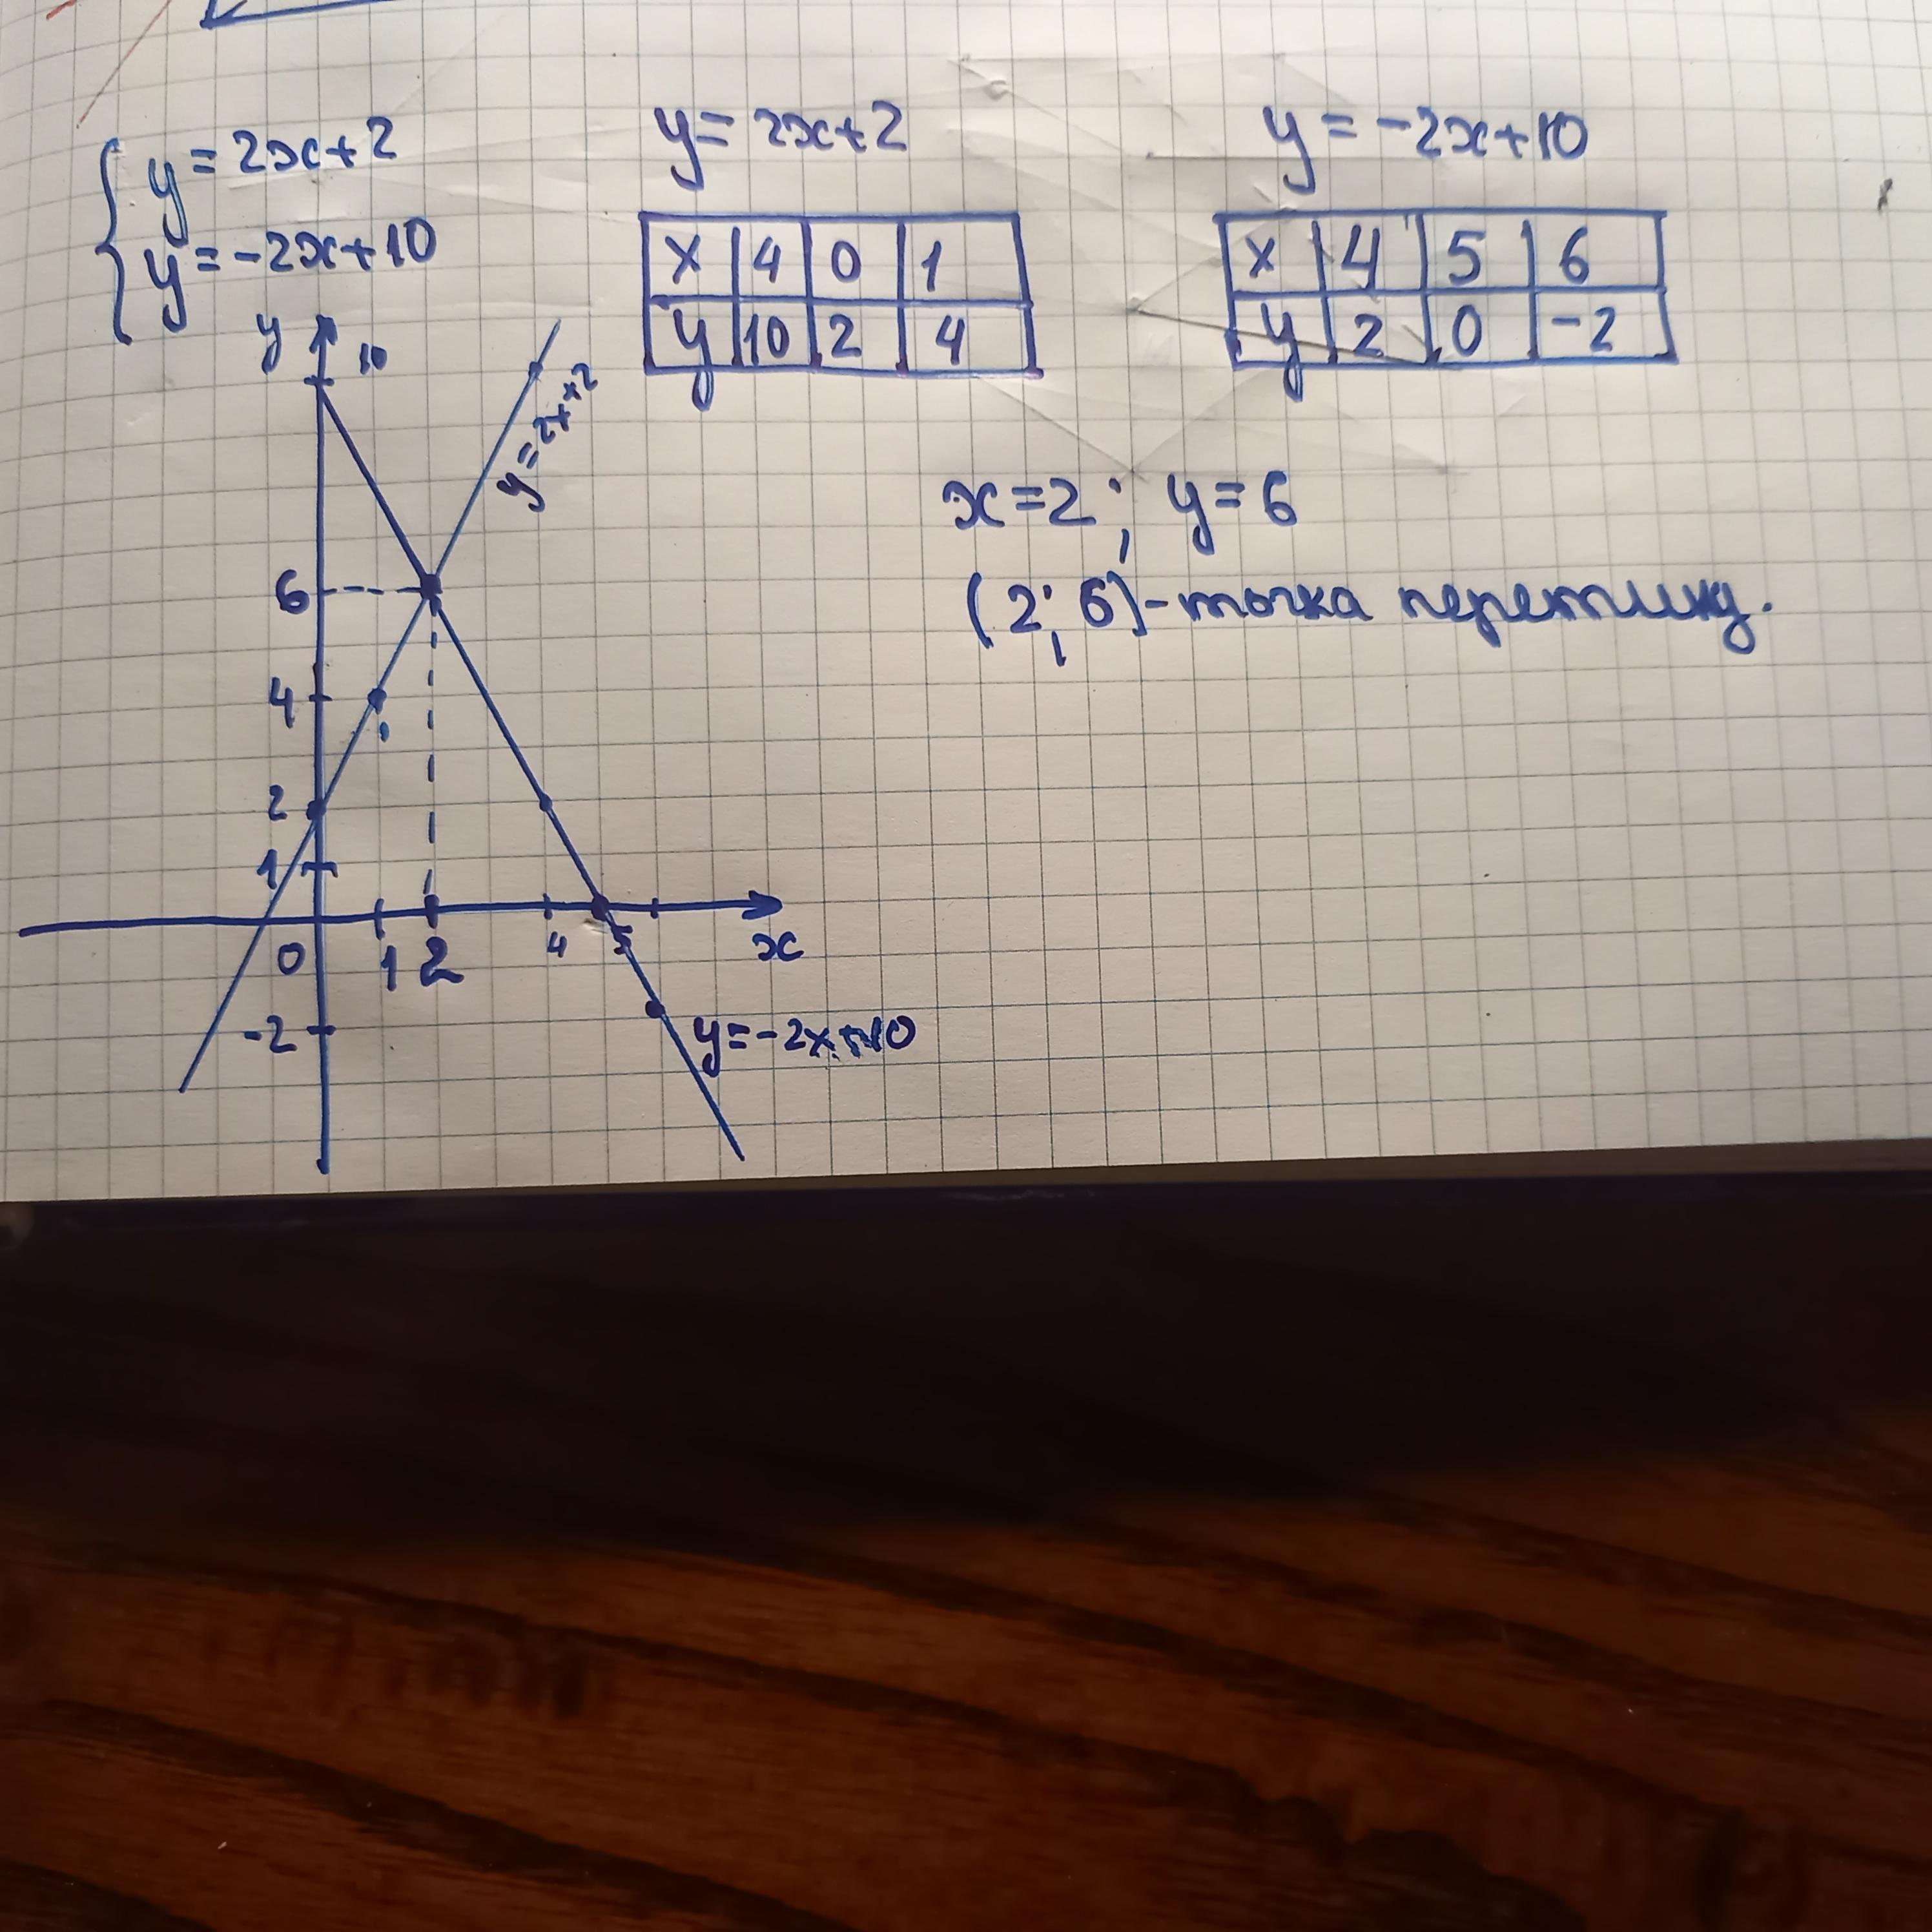 y = 2x+2
y = -2x+10
y = 2x+2
x 4 0 1
y 10 2 4
y = -2x+10
x 4 5 6
y 2 0 -2
x = 2; y = 6
(2; 6) - точка перетину.
y 10
y = 2x+2
6
4
2
1
0 1 2 4 5 x
-2
y = -2x+10